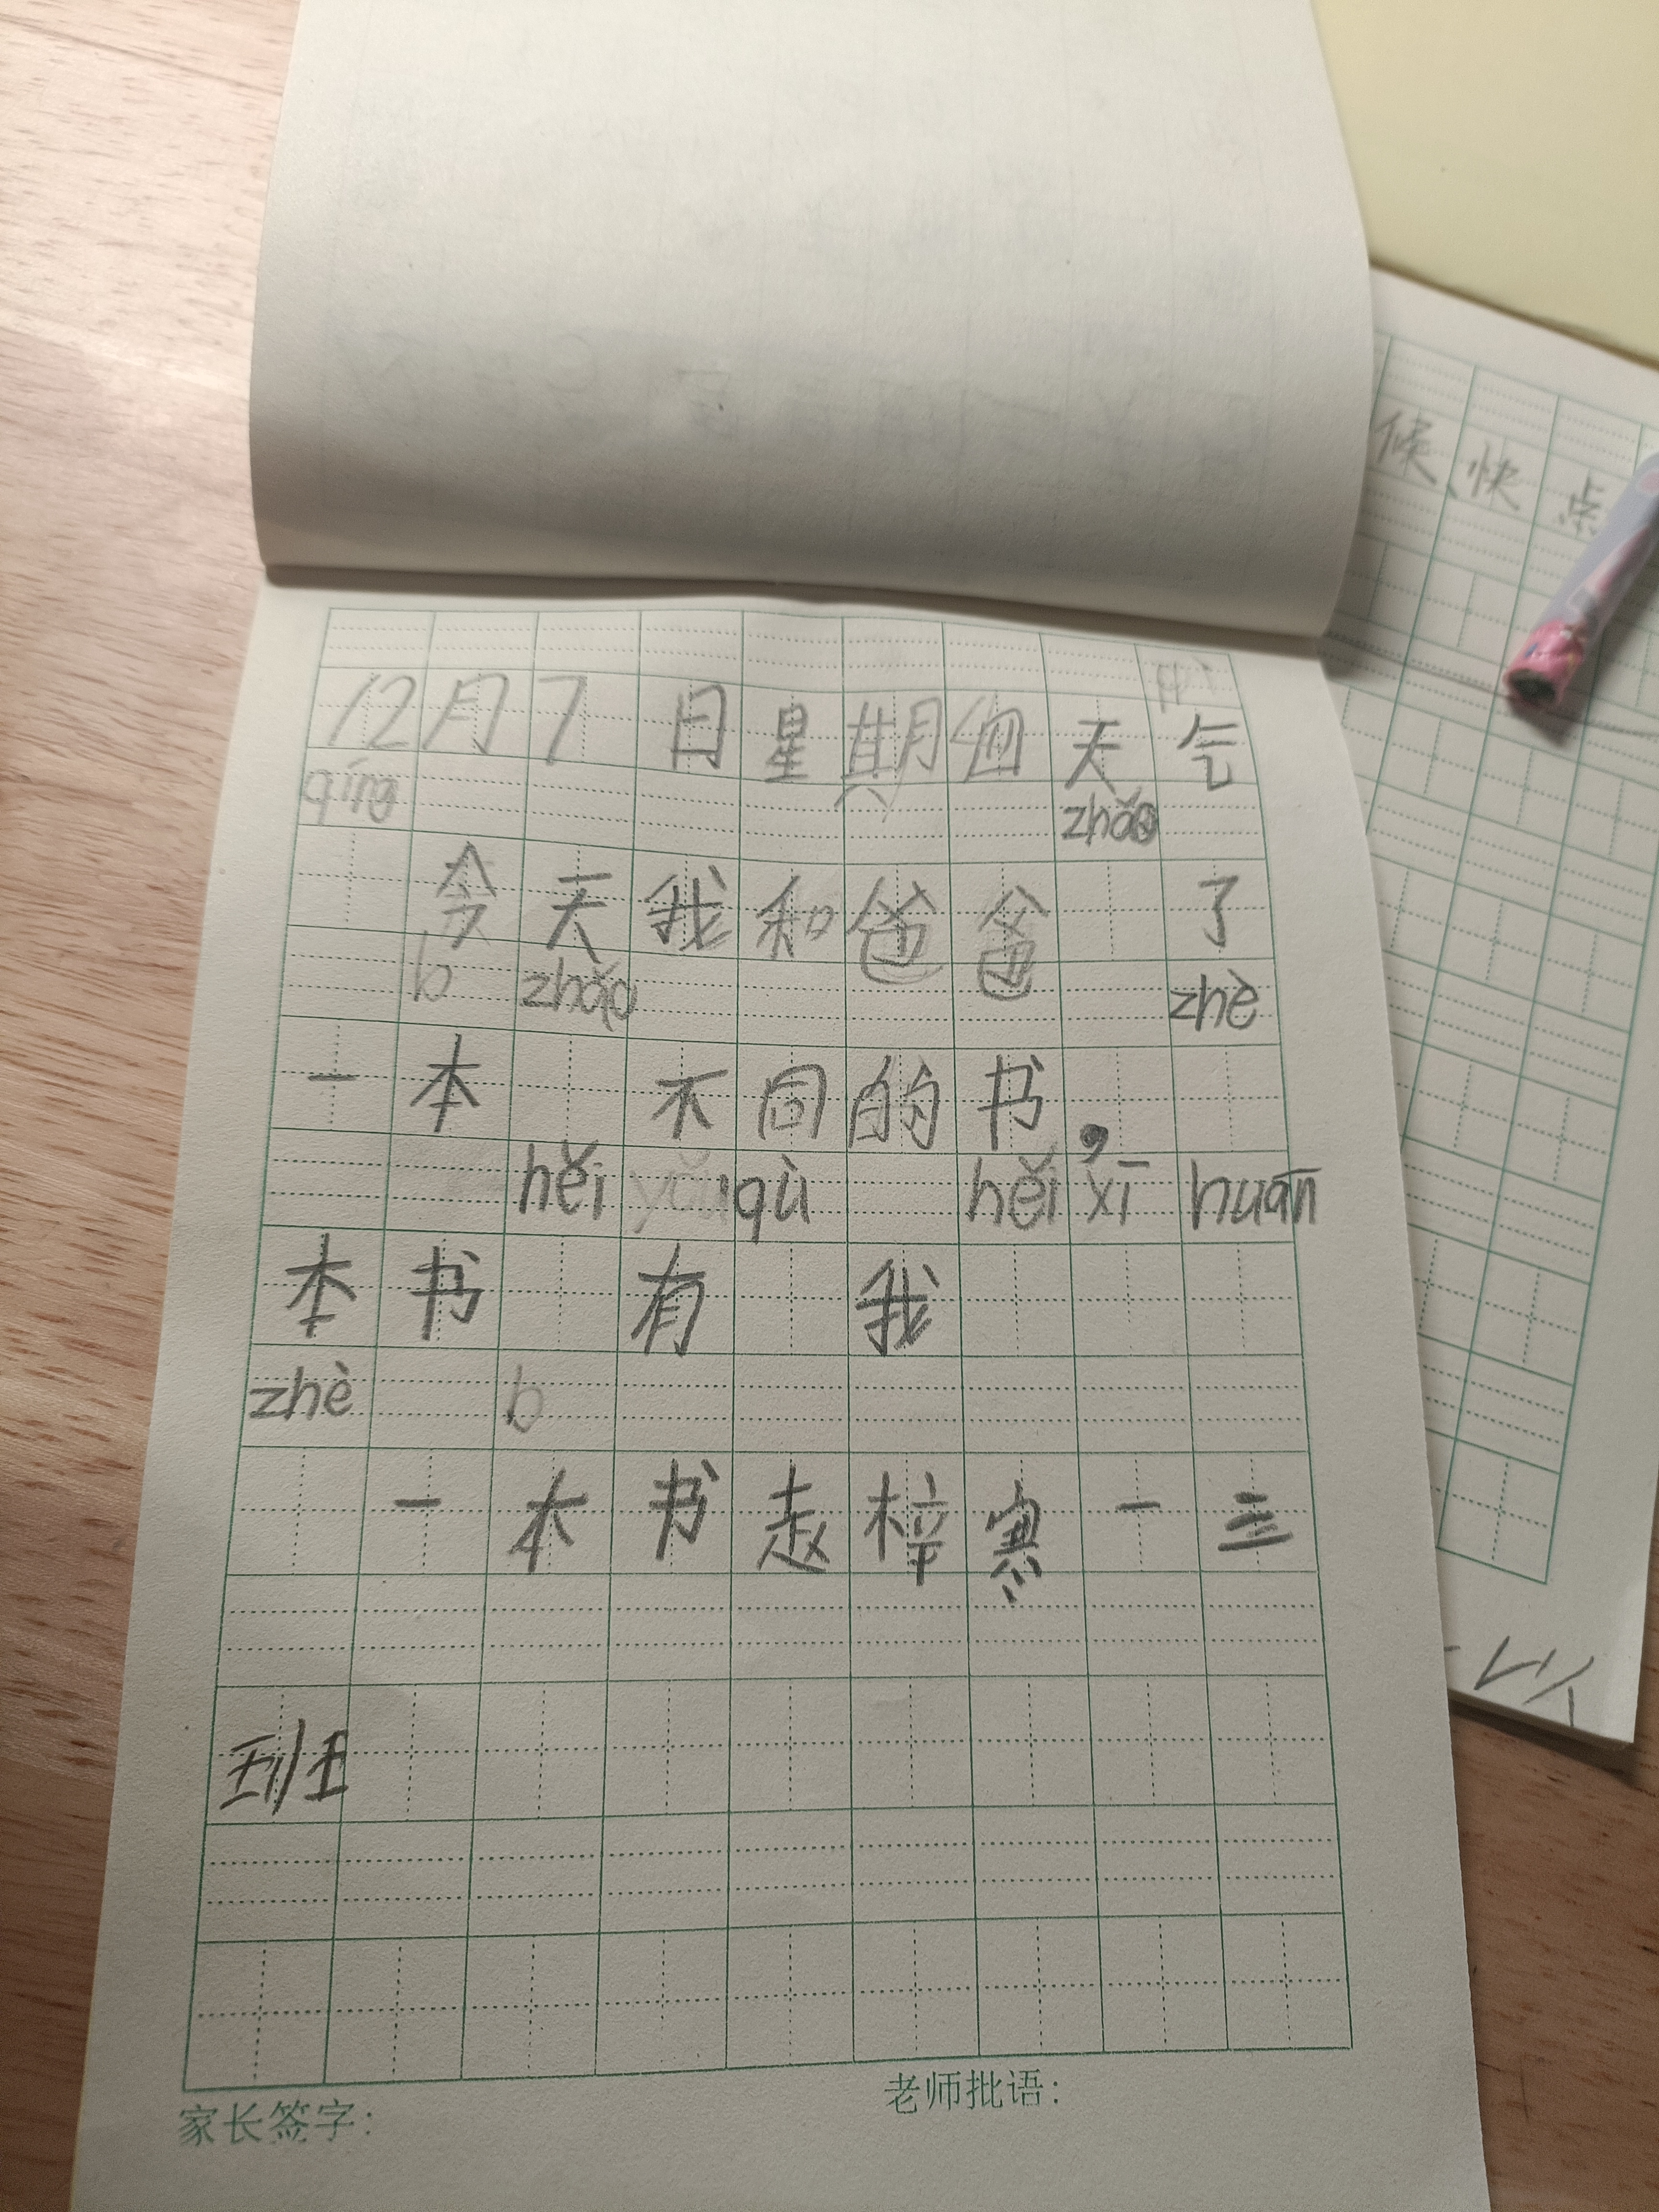 12月7日星期四天气
qíng
zhǎo
今天我和爸爸 了
b zhǎo zhè
一本 不同的书,
hěi yǒu qù hěi xī huān
本书 有 我
zhè b
一本书赵梓寒一三
班
家长签字: 老师批语:
候快点